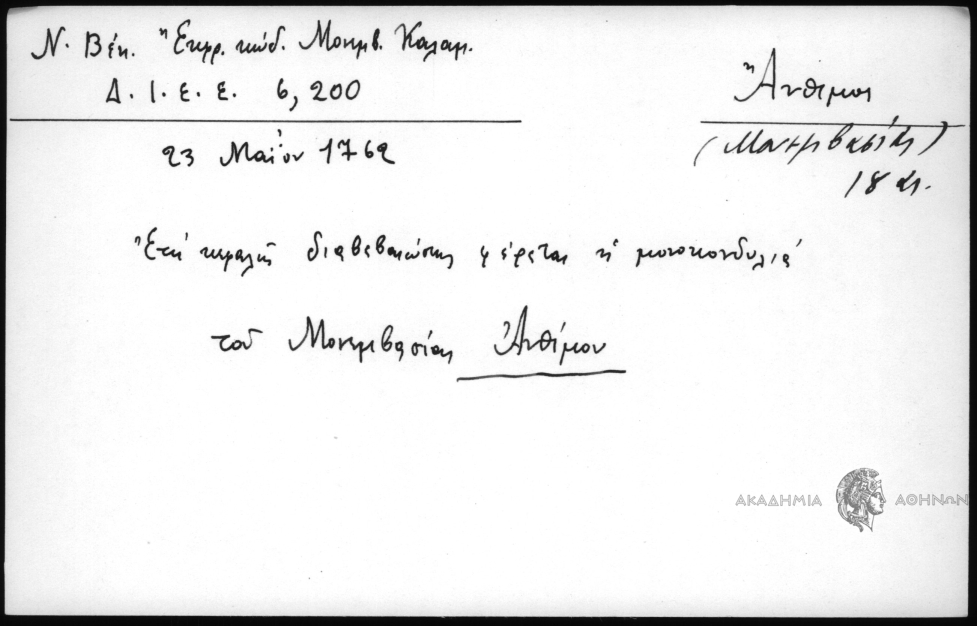 Ν. Βέη. Ἔκφρ. κώδ. Μονεμβ. Καλαμ.
Δ. Ι. Ε. Ε. 6, 200
Ἄνθιμος
(Μονεμβασίας)
18 αι.
23 Μαΐου 1762
Ἐπὶ κεφαλῆς διαβεβαιώσεως φέρεται ἡ μονοκονδυλιά
τοῦ Μονεμβασίας Ἀνθίμου
ΑΚΑΔΗΜΙΑ ΑΘΗΝΩΝ